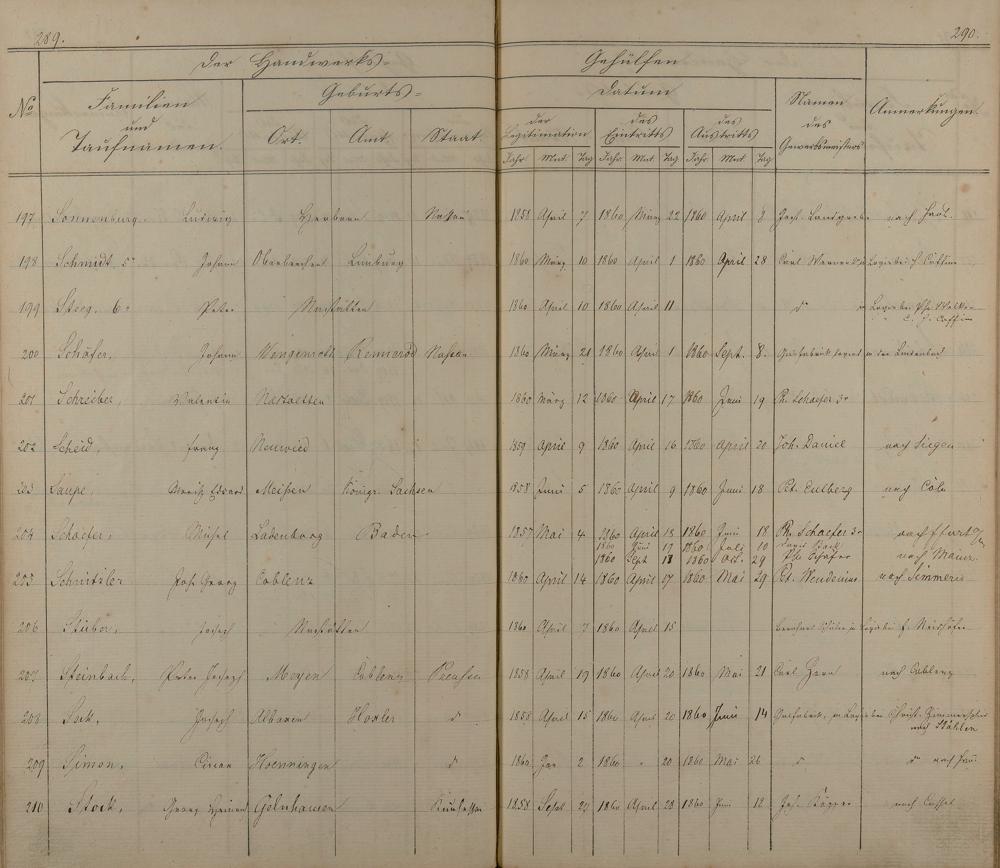 289.
290.
Der Handwerks=
Gehülfen
No
Familien
und
Taufnamen.
Geburts=
Ort. Amt. Staat.
Datum
der Legitimation
des Eintritts
des Austritts
Jahr Mnt. Tag Jahr. Mnt. Tag Jahr Mnt Tag
Namen
des
Gewerbsmeisters
Anmerkungen.
197 Sonnenburg. Ludwig Herborn Nassau 1858 April 7 1860 März 22 1860 April 8 nach
198 Schmidt 5r Johann Oberbrechen Limburg 1860 März 10 1860 April 1 1860 April 28 Carl
199 Steeg. 6r Peter Nastätten 1860 April 10 1860 April 11 d
200 Schäfer, Johann Wengenroth Rennerod Nassau 1860 März 21 1860 April 1 1860 Sept. 8.
201 Schreiber, Valentin Nastaetten 1860 März 12 1860 April 17 1860 Juni 19 P. Schaefer 3r
202 Scheid, Franz Neuwied 1859 April 9 1860 April 16 1860 April 20 Joh. Daniel nach Siegen
203 Laupe, Moritz Eduard Meißen Königr. Sachsen 1858 Juni 5 1860 April 9 1860 Juni 18 Pet. Eulberg nach Cöln
204 Schaefer, Michel Ladenburg Baden 1857 Mai 4 1860 April 18 1860 Juni 18 Ph. Schaefer 3r nach Ffurt a/M
1860 Juni 17 1860 Juli 10
1860 Sept 18 1860 Oct. 29 Ph. Schäfer nach Mainz
205 Schnitzler Joh. Georg Coblenz 1860 April 14 1860 April 17 1860 Mai 29 Pet. Wendenius nach Simmern
206 Stüber, Joseph Nastätten 1860 April 7 1860 April 15
207 Steinbach, Peter Joseph Mayen Coblenz Preußen 1858 April 19 1860 April 20 1860 Mai 21 Carl Zorn nach Coblenz
208 Suk, Joseph Albaxen Hoxter d 1858 April 15 1860 April 20 1860 Juni 14 Christ. Zimmerschied
nach
209 Simon, Hoenningen d 1860 Jan 2 1860 " 20 1860 Mai 26 d d nach
210 Stock, Georg Heinrich Gelnhausen Kurhessen 1858 Sept 24 1860 April 28 1860 Juni 12 Joh. nach Cassel